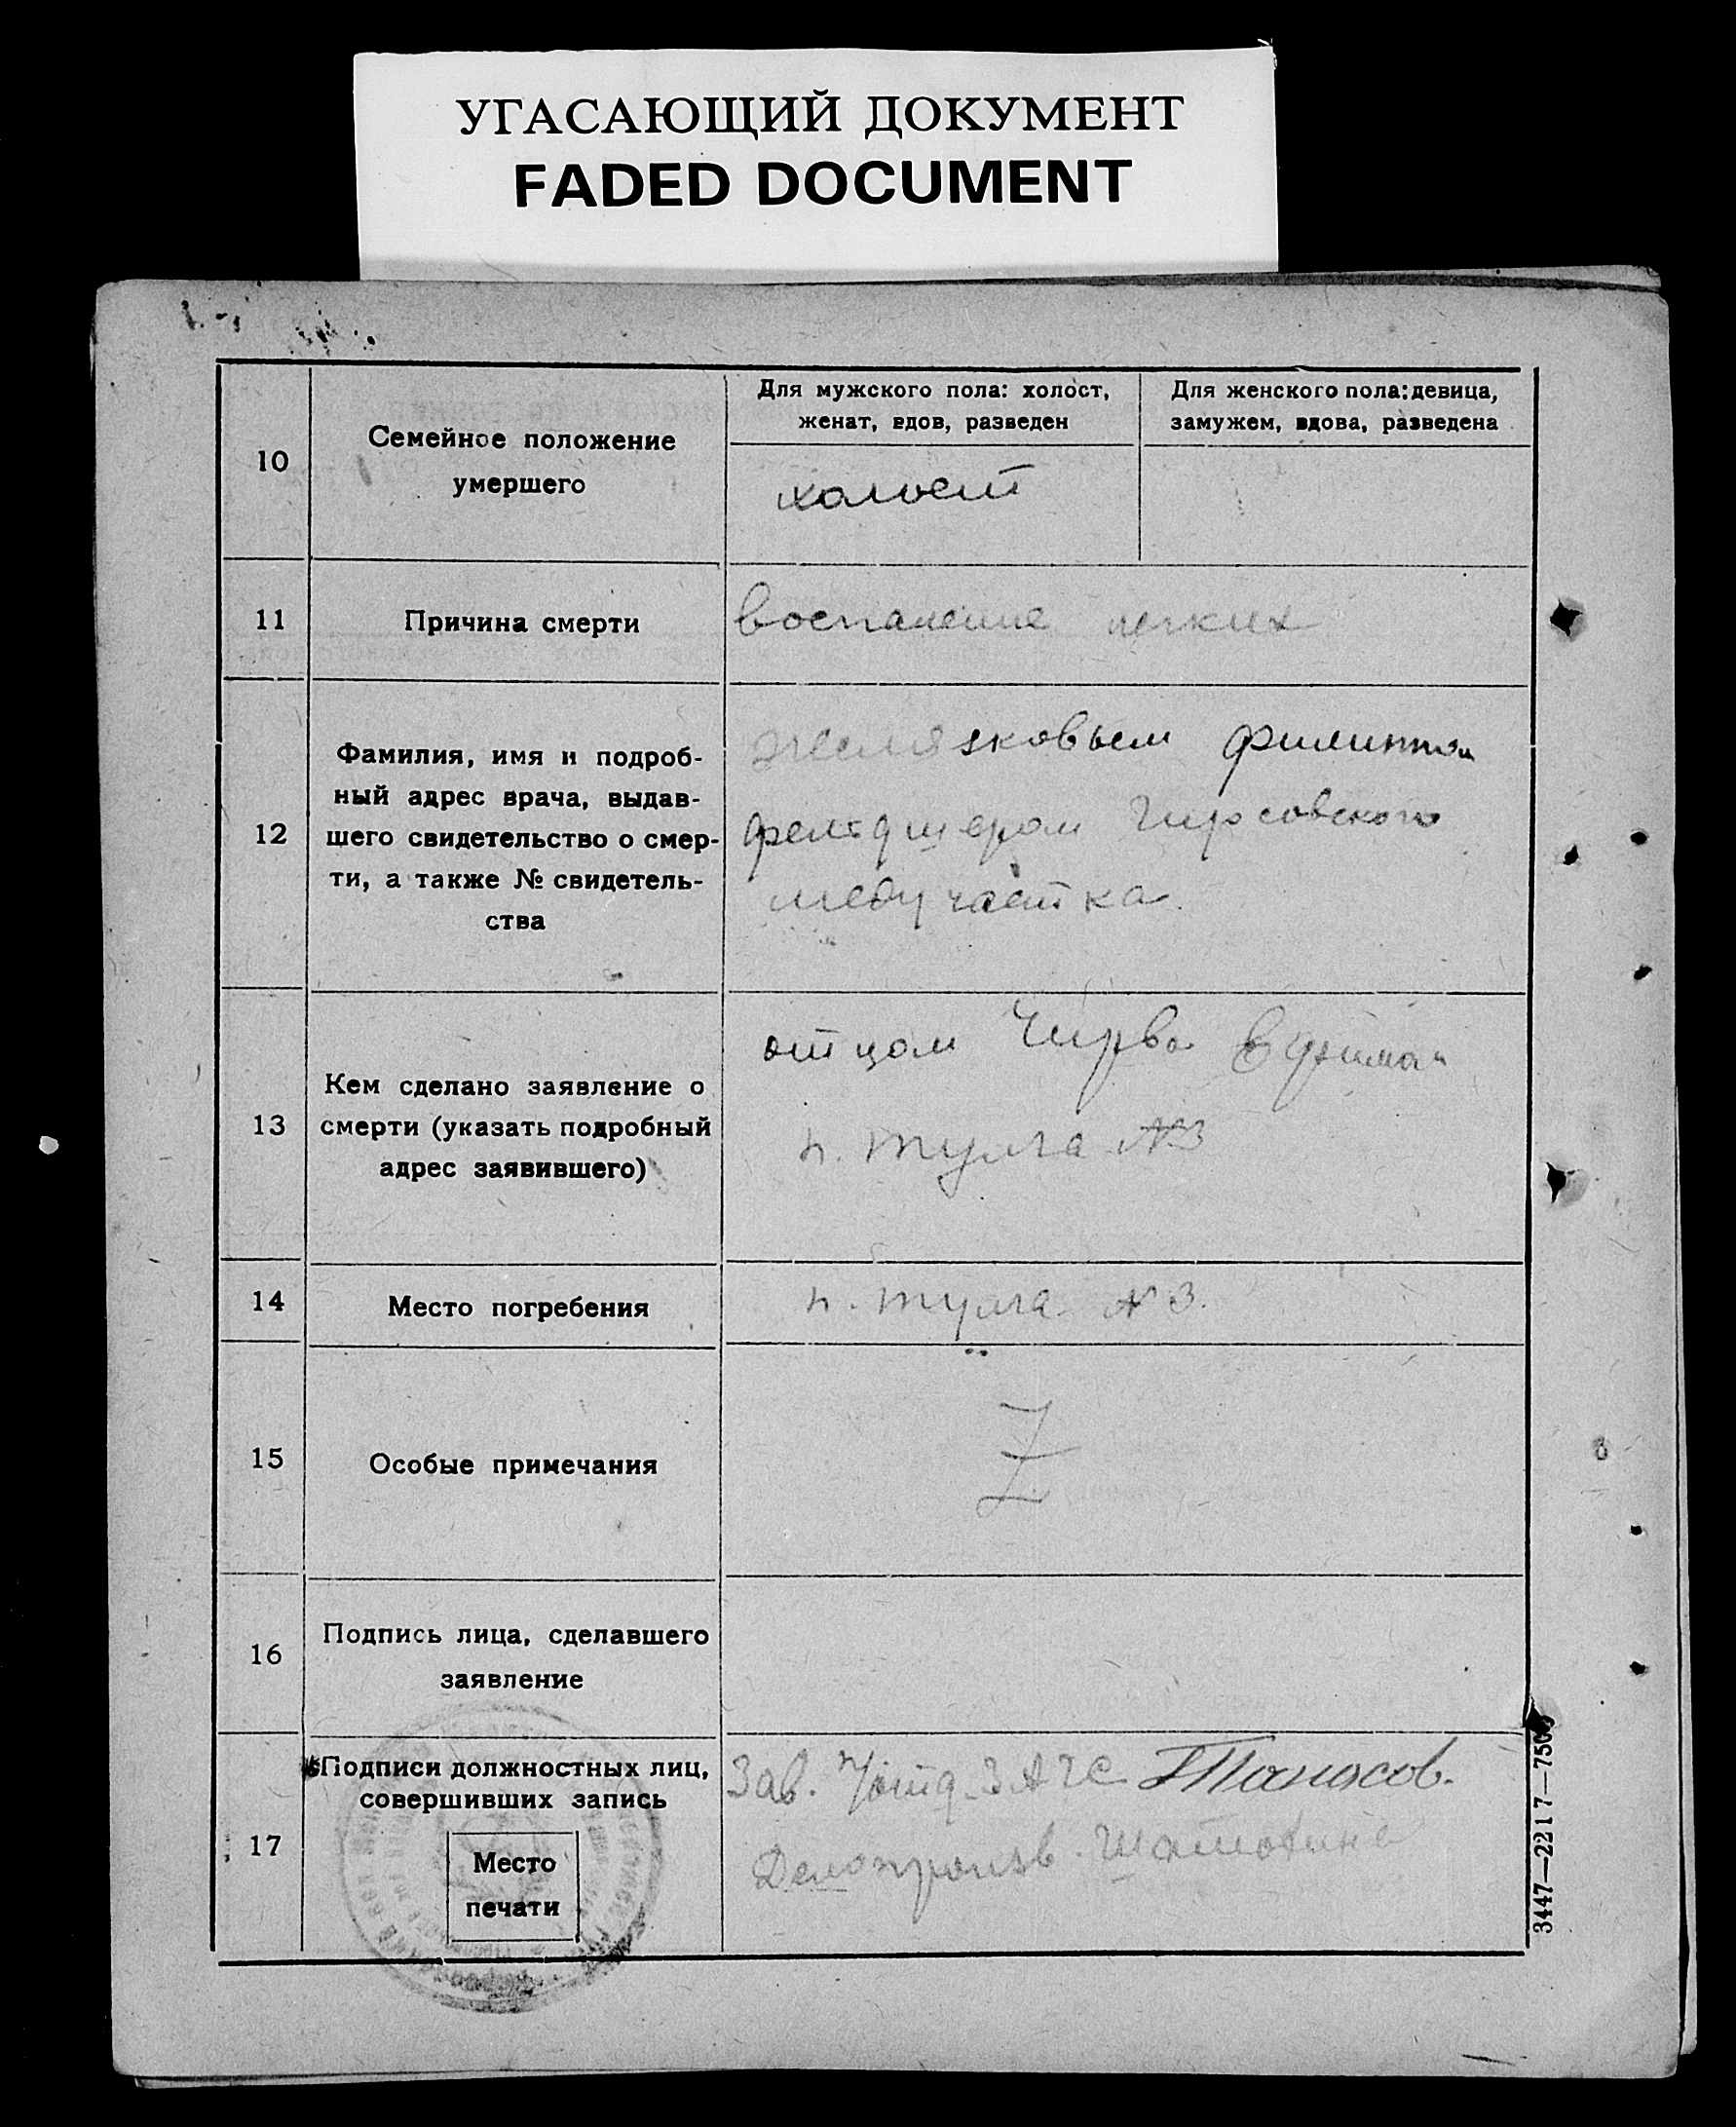 УГАСАЮЩИЙ ДОКУМЕНТ
FADED DOCUMENT
10
Семейное положение
умершего
Для мужского пола: холост,
женат, вдов, разведен
Для женского пола: девица,
замужем, вдова, разведена
холост
11
Причина смерти
воспаление легких
12
Фамилия, имя и подроб-
ный адрес врача, выдав-
шего свидетельство о смер-
ти, а также № свидетель-
ства
Желязковым Филиппом
фельдшером
медучастка
13
Кем сделано заявление о
смерти (указать подробный
адрес заявившего)
отцом Чирва Ефимом
п. Тулга №3
14
Место погребения
п. Тулга №3.
15
Особые примечания
Z
16
Подпись лица, сделавшего
заявление
17
Подписи должностных лиц,
совершивших запись
Место
печати
Зав. ЗАГС
Делопроизв.
3447—2217—750